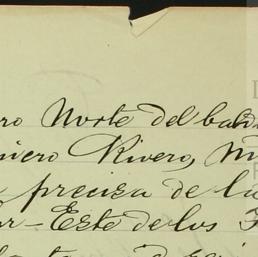 ro Norte del bald
niero Rivero, M
precisa de la
r-Este de los F